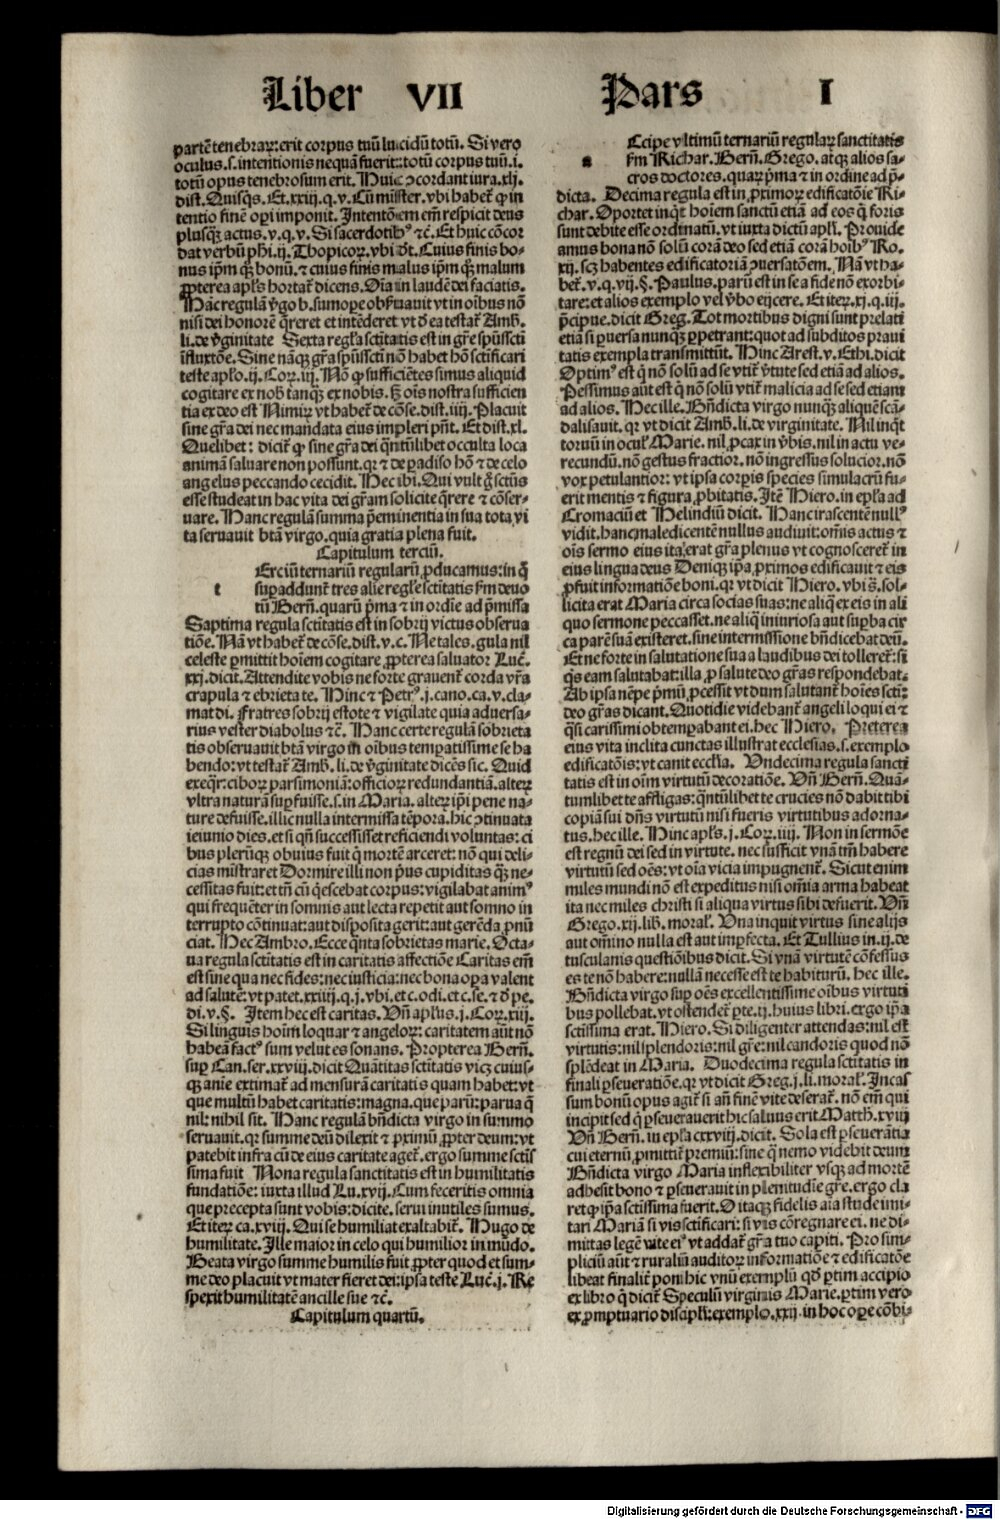 Liber VII Pars I
partē tenebraꝝ: erit corpus tuū lucidū totū. Si vero
oculus .s. intentionis nequā fuerit: totū corpus tuū .i.
totū opus tenebrosum erit. Huic ꝯcordant iura .xlj.
dist. Quisqs. Et .xxiij. q. v. Cū mister. vbi habet̄ ꝙ in
tentio finē opi imponit. Intentōem em̄ respicit deus
plusqꝫ actus .v. q. v. Si sacerdotibꝰ ⁊c̄. Et huic cōcor
dat verbū phi .ij. Thopicoꝝ. vbi dt̄. Cuius finis bo-
nus ip̄m qꝫ bonū. ⁊ cuius finis malus ip̄m qꝫ malum
ꝓpterea apl̄s hortat̄ dicens. Oīa in laudē dei faciatis.
Hāc regulā ṽgo b. sumope obseruauit vt in oībus nō
nisi dei honorē q̄reret et intēderet vt ꝺ ea testat̄ Amb.
li. de ṽginitate Sexta regl̄a sctītatis est in gr̄e spūssctī
īfluxtōe. Sine nāqꝫ gr̄a spūssctī non habet hō sctīficari
teste apl̄o .ij. Coꝝ. iij. Nō ꝙ sufficiētes simus aliquid
cogitare ex nob̄ tanqꝫ ex nobis. ſꝫ oīs nostra sufficien
tia ex deo est Nimiꝝ vt habet̄ de cōse. dist. iiij. Placuit
sine gr̄a dei nec mandata eius impleri pn̄t. Et dist. xl.
Quelibet: dicit̄ ꝙ sine gr̄a dei qn̄tūlibet occulta loca
animā saluare non possunt. qꝛ ⁊ de padiso hō ⁊ de celo
angelus peccando cecidit. Hec ibi. Qui vult ḡ sctūs
esse studeat in hac vita dei gr̄am solicite q̄rere ⁊ cōser-
uare. Hanc regulā summa p̄eminentia in sua tota vi
ta seruauit btā virgo. quia gratia plena fuit.
Capitulum terciū.
t Erciū ternariū regularū ꝓducamus: in q̄
suꝑaddunt̄ tres alie regl̄e sctītatis ẜm deuo
tū Berñ. quarū p̄ma ⁊ in ordīe ad p̄missa
Saptima regula sctītatis est in sobrij victus obserua
tiōe. Nā vt habet̄ de cōse. dist. v. c. Ne tales. gula nil
celeste ꝑmittit hoīem cogitare ꝓpterea saluator Luc̄.
xxj. dicit. Attendite vobis ne forte grauent̄ corda vr̄a
crapula ⁊ ebrietate. Hinc ⁊ Petrꝰ .j. cano. ca. v. cla-
mat di. Fratres sobrij estote ⁊ vigilate quia aduersa-
rius vester diabolus ⁊c̄. Hanc certe regulā sobrieta
tis obseruauit btā virgo in oībus temꝑatissime se ha
bendo: vt testat̄ Amb. li. de ṽginitate dicēs sic. Quid
exeqr̄: ciboꝝ parsimoniā: officioꝝ redundantiā. alteꝝ
vltra naturā suꝑfuisse .s. in Maria. alteꝝ ip̄i pene na-
ture defuisse. illic nulla intermissa tēpora. hic ꝯtinuata
ieiunio dies. et si qn̄ successisset reficiendi voluntas: ci
bus plerūqꝫ obuius fuit q̄ mortē arceret: nō qui deli-
cias ministraret Dormire illi non p̄us cupiditas qꝫ ne-
cessitas fuit: et tn̄ cū q̄escebat corpus: vigilabat animꝰ
qui frequēter in somnis aut lecta repetit aut somno in
terrupto cōtinuat: aut disposita gerit: aut gerēda ꝓnū
ciat. Hec Ambro. Ecce q̄nta sobrietas marie. Octa-
ua regula sctītatis est in caritatis affectiōe Caritas em̄
est sine qua nec fides: nec iusticia: nec bona oꝑa valent
ad salutē: vt patet .xxiij. q. j. vbi. et c. odi. et c. se. ⁊ ꝺ pe.
di. v. §. Item hec est caritas. Vn̄ apl̄us .j. Coꝝ. xiij.
Si linguis hoīm loquar ⁊ angeloꝝ: caritatem aūt nō
habeā factꝰ sum velut es sonans. Propterea Berñ.
suꝑ Can. ser. xxviij. dicit Quātitas sctītatis vicꝫ cuius-
qꝫ anīe extimat̄ ad mensurā caritatis quam habet: vt
que multū habet caritatis: magna. que parū: parua q̄
nil: nihil sit. Hanc regulā bn̄dicta virgo in summo
seruauit. qꝛ summe deū dilexit ⁊ ꝓximū ꝓpter deum: vt
patebit infra cū de eius caritate aget̄. ergo summe sctīs
sima fuit Nona regula sanctitatis est in humilitatis
fundatiōe: iuxta illud Lu. xvij. Cum feceritis omnia
que precepta sunt vobis: dicite. serui inutiles sumus.
Et iteꝝ ca. xviij. Qui se humiliat exaltabit̄. Hugo de
humilitate. Ille maior in celo qui humilior in mūdo.
Beata virgo summe humilis fuit ꝓpter quod et sum-
me deo placuit vt mater fieret dei: ipsa teste Luc̄. j. Re
spexit humilitatē ancille sue ⁊c̄.
Capitulum quartū.
a Ccipe vltimū ternariū regulaꝝ sanctitatis
ẜm Richar. Berñ. Grego. atqꝫ alios sa-
cros doctores. quaꝝ p̄ma ⁊ in ordine ad p̄-
dicta. Decima regula est in ꝓximoꝝ edificatōie Ri-
char. Oportet inqt̄ hoīem sanctū etiā ad eos q̄ foris
sunt debite esse ordinatū. vt iuxta dictū apl̄i. Prouide
amus bona nō solū corā deo sed etiā corā hoībꝰ Ro.
xij. scꝫ habentes edificatoriā ꝯuersatōem. Nā vt ha-
bet̄. v. q. vij. §. Paulus. parū est in se a fide nō exorbi-
tare: et alios exemplo vel ṽbo eijcere. Et iteꝝ .xj. q. iij.
p̄cipue. dicit Greg. Tot mortibus digni sunt prelati
etiā si ꝑuersa nunqꝫ ꝑpetrant: quot ad subditos praui
tatis exempla transmittūt. Hinc Arest. v. Ethi. dicit
Optimꝰ est q̄ nō solū ad se vtit̄ ṽtute sed etiā ad alios.
Pessimus aūt est q̄ nō solū vtit̄ malicia ad se sed etiam
ad alios. Hec ille. Bn̄dicta virgo nunqꝫ aliquē scā-
dalisauit. qꝛ vt dicit Amb. li. de virginitate. Nil inqt̄
toruū in ocul̄ Marie. nil ꝓcax in ṽbis. nil in actu ve-
recundū. nō gestus fractior. nō ingressus solucior. nō
vox petulantior: vt ipsa corꝑis species simulacrū fu-
erit mentis ⁊ figura ꝓbitatis. Itē Hiero. in epl̄a ad
Cromaciū et Helindiū dicit. Hanc irascentē nullꝰ
vidit. hanc maledicentē nullus audiuit: omīs actus ⁊
oīs sermo eius ita erat gr̄a plenus vt cognosceret̄ in
eius lingua deus Deniqꝫ ip̄a ꝓximos edificauit ⁊ eis
ꝓfuit informatiōe boni. qꝛ vt dicit Hiero. vbi s̄. sol-
licita erat Maria circa socias suas: ne aliq̄ ex eis in ali
quo sermone peccasset. ne aliq̄ iniuriosa aut suꝑba cir
ca parē suā existeret. sine intermissione bn̄dicebat deū.
Et ne forte in salutatione sua a laudibus dei tolleret̄: si
qs̄ eam salutabat: illa ꝓ salute deo gr̄as respondebat.
Ab ipsa nēpe p̄mū ꝓcessit vt dum salutant̄ hoīes sctī:
deo gr̄as dicant. Quotidie videbant̄ angeli loqui ei ⁊
q̄si carissimi obtemꝑabant ei. hec Hiero. Preterea
eius vita inclita cunctas illustrat ecclesias .s. exemplo
edificatōis: vt canit ecclīa. Vndecima regula sanctī
tatis est in oīm virtutū decoratiōe. Vn̄ Berñ. Quā-
tumlibet te affligas: qn̄tūlibet te crucies nō dabit tibi
copiā sui dn̄s virtutū nisi fueris virtutibus adorna-
tus. hec ille. Hinc apl̄s .j. Coꝝ. iiij. Non in sermōe
est regnū dei sed in virtute. nec sufficit vnā tm̄ habere
virtutū sed oēs: vt oīa vicia impugnent̄. Sicut enim
miles mundi nō est expeditus nisi om̄ia arma habeat
ita nec miles christi si aliqua virtus sibi defuerit. Vn̄
Grego. xij. lib. moral̄. Vna inquit virtus sine alijs
aut om̄ino nulla est aut imꝑfecta. Et Tullius in .ij. de
tusculanis questiōibus dicit. Si vnā virtutē cōfessus
es te nō habere: nullā necesse est te habiturū. hec ille.
Bn̄dicta virgo suꝑ oēs excellentissime oībus virtuti
bus pollebat. vt ostendet̄ ꝑte .ij. huius libri. ergo ip̄a
sctīssima erat. Hiero. Si diligenter attendas: nil est
virtutis: nil splendoris: nil gr̄e: nil candoris quod nō
splēdeat in Maria. Duodecima regula sctītatis in
finali ꝑseueratiōe. qꝛ vt dicit Greg. j. li. moral̄. Incas
sum bonū opus agit̄ si an̄ finē vite deserat̄. nō em̄ qui
incipit sed q̄ ꝑseuerauerit hic saluus erit Matth. xviij
Vn̄ Berñ. in epl̄a cxxviij. dicit. Sola est ꝑseuerātia
cui eternū ꝓmittit̄ premiū: sine q̄ nemo videbit deum
Bn̄dicta virgo Maria inflexibiliter vsqꝫ ad mortē
adhesit bono ⁊ ꝑseuerauit in plenitudīe gr̄e. ergo cla
ret ꝙ ip̄a sctīssima fuerit. O itaqꝫ fidelis aīa stude imi-
tari Mariā si vis sctīficari: si vis cōregnare ei. ne di-
mittas legē vite eiꝰ vt addat̄ gr̄a tuo capiti. Pro sim-
pliciū aūt ⁊ ruraliū auditoꝝ informatiōe ⁊ edificatōe
libeat finalit̄ poni hic vnū exemplū qd̄ ꝑtim accipio
ex libro q̄ dicit̄ Speculū virginis Marie. ꝑtim vero
ex ꝓmptuario discipl̄i: exemplo .xxij. in hoc oꝑe cōbi-
Digitalisierung gefördert durch die Deutsche Forschungsgemeinschaft - DFG